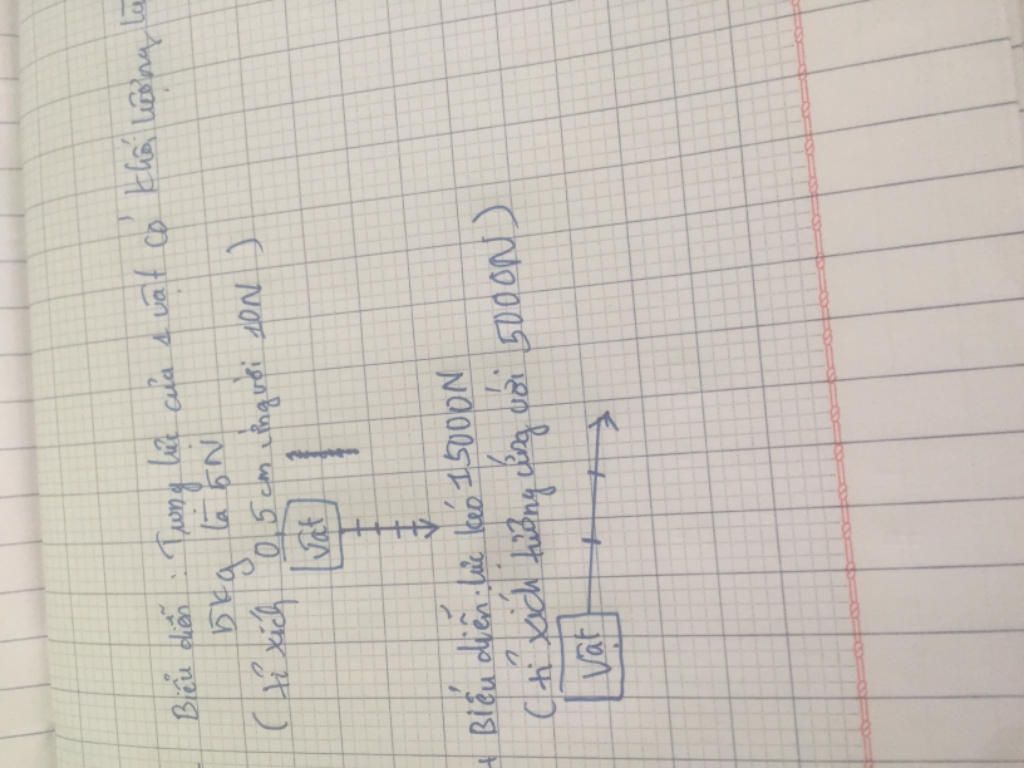 Biểu diễn : Trọng lực của 1 vật có khối lượng là
5kg là 5N
(tỉ xích 0,5cm ứng với 10N)
Vật
+ Biểu diễn lực kéo 15000N
(tỉ xích tương ứng với 5000N)
Vật